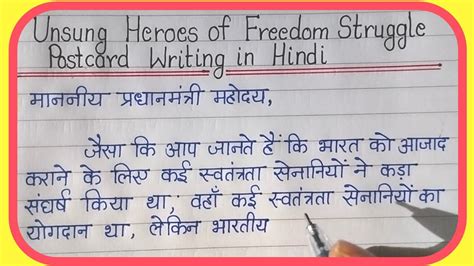 Unsung Heroes of Freedom Struggle
Postcard Writing in Hindi
माननीय प्रधानमंत्री महोदय,
जैसा कि आप जानते हैं कि भारत को आजाद
कराने के लिए कई स्वतंत्रता सेनानियों ने कड़ा
संघर्ष किया था, वहाँ कई स्वतंत्रता सेनानियों का
योगदान था, लेकिन भारतीय